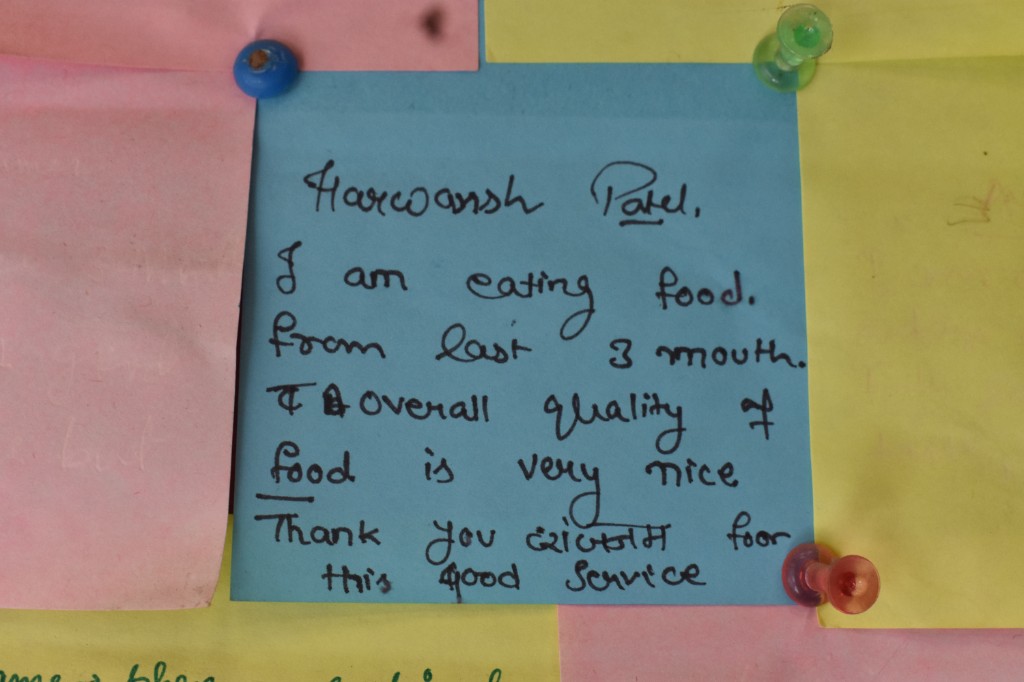 Harwansh Patel.
I am eating food.
from last 3 mouth.
overall quality of
food is very nice
Thank you foor
this good service